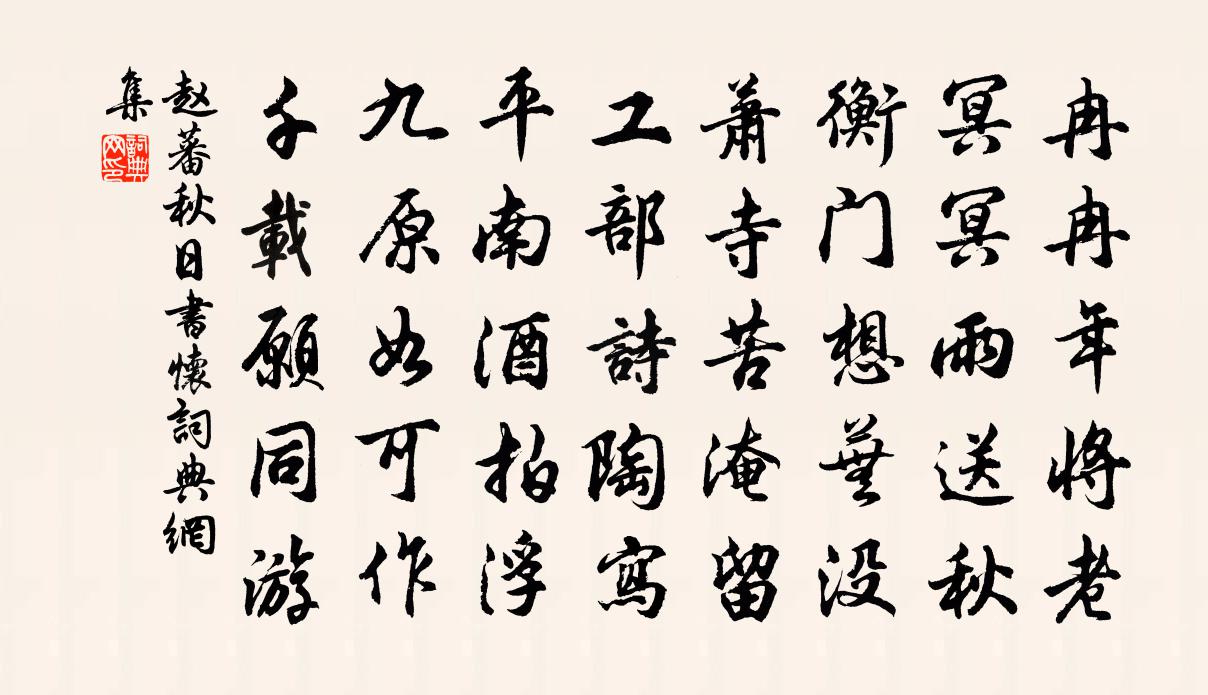 冉冉年将老
冥冥雨送秋
衡门想芜没
萧寺苦淹留
工部詩陶寫
平南酒拍浮
九原如可作
千載願同游
赵蕃秋日書懷詞典網
集
詞典
网印